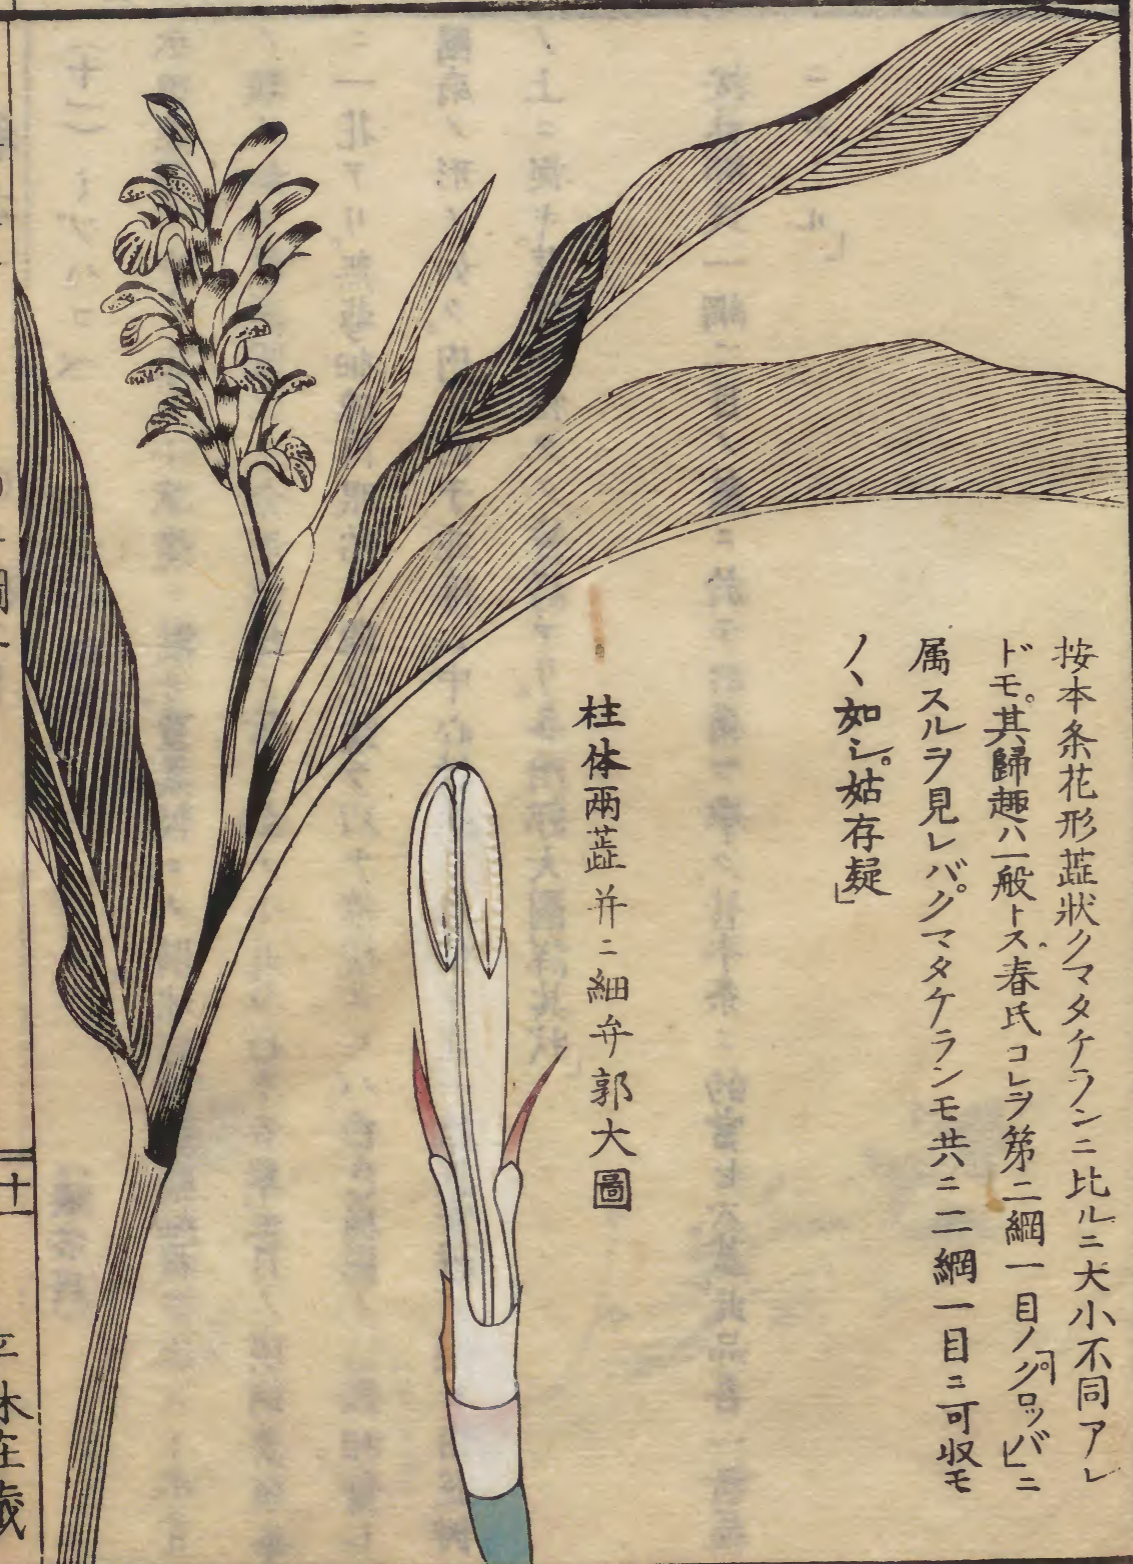 按本条花形蕋狀クマタケランニ比ルニ大小不同アレ
ドモ。其歸趣ハ一般トス。春氏コレヲ第二綱一目ノ「グロッバ」ニ
属スルヲ見レバ。クマタケランモ共ニ二綱一目ニ可收モ
ノヽ如シ。姑存疑」
柱体兩蕋并ニ細弁郭大圖
十一
平林荘藏